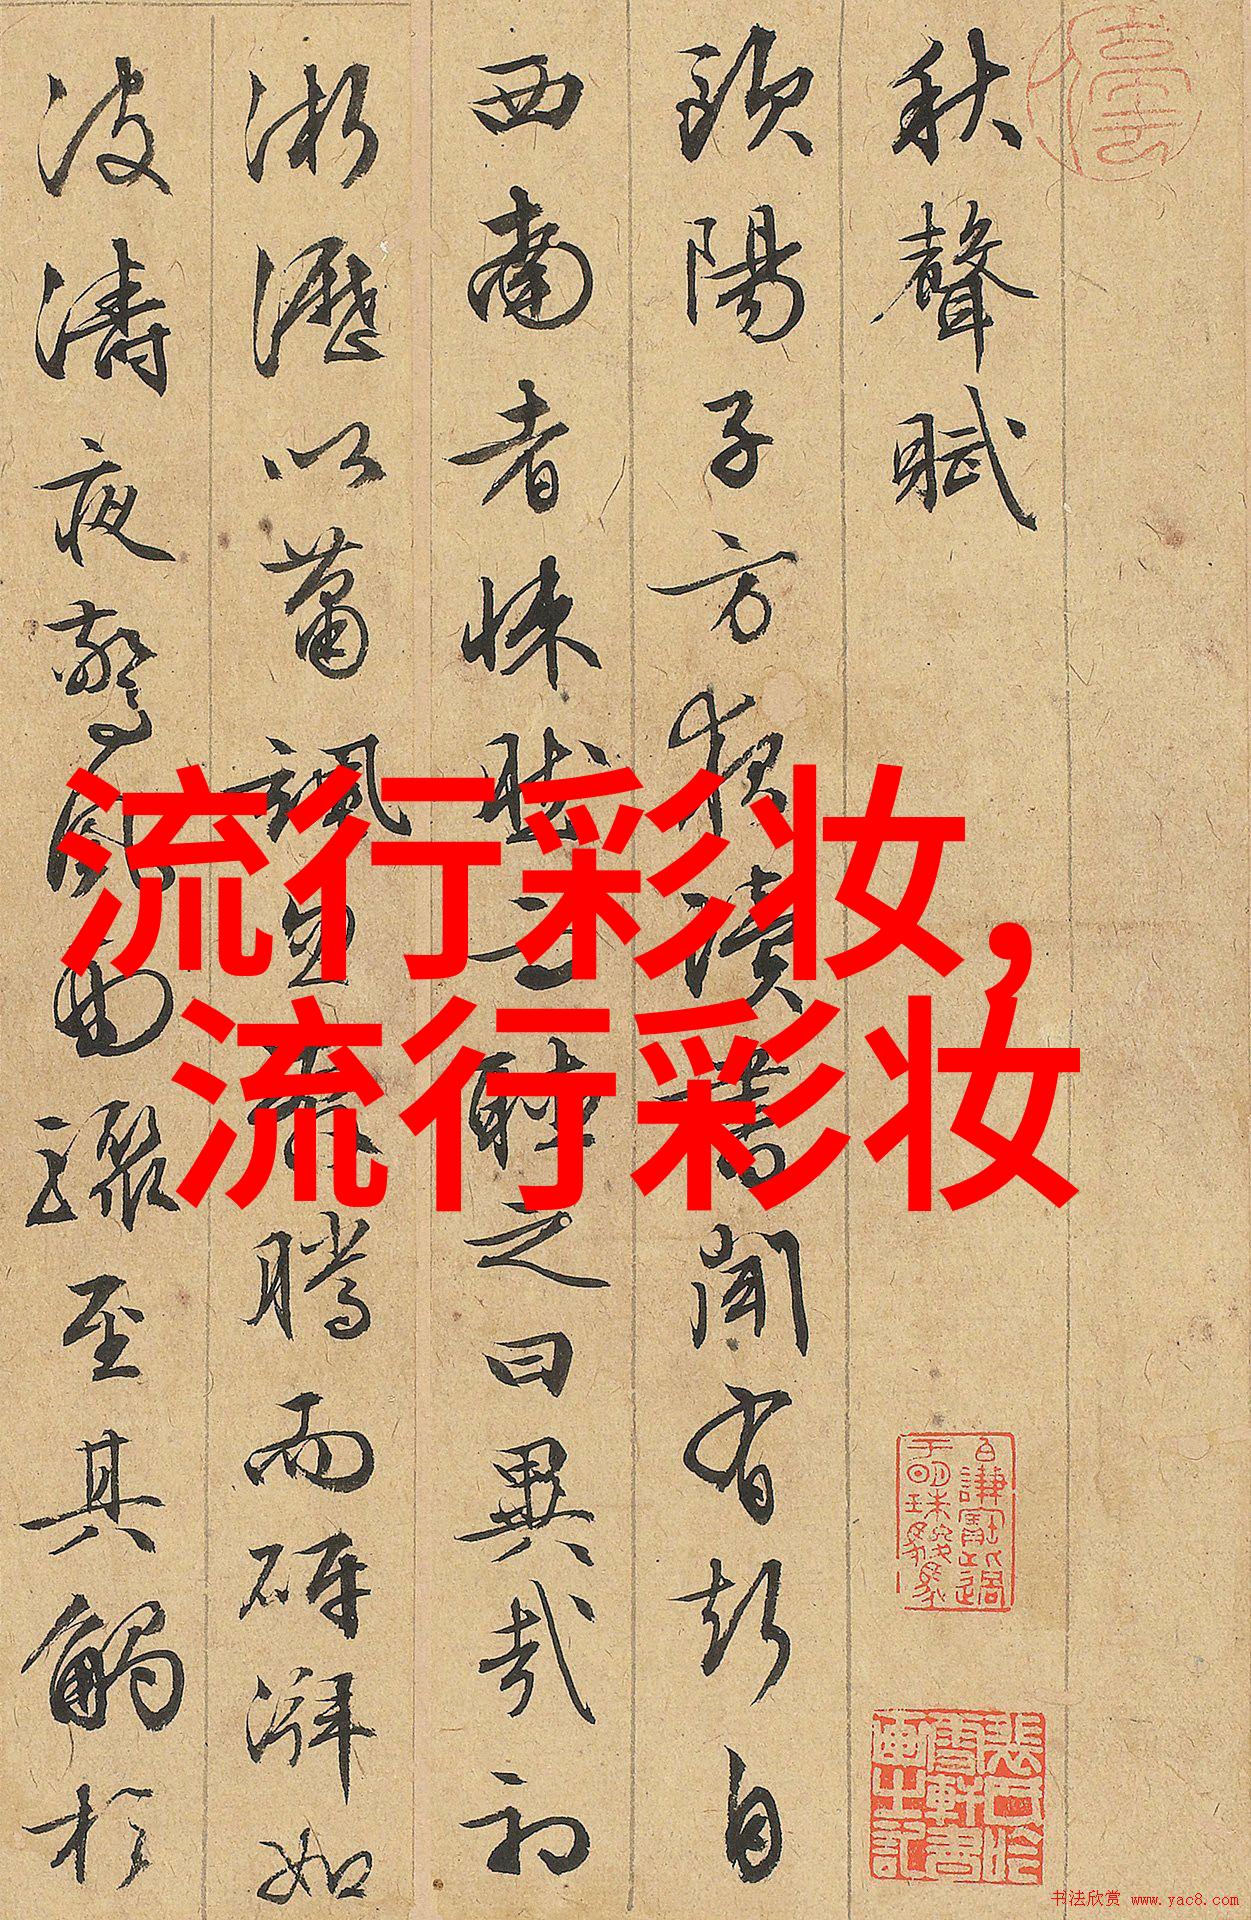 秋聲賦
歐陽子方夜讀書聞有聲自
西南者悚然而聽之曰異哉初
淅瀝以蕭颯忽奔騰而砰湃如
波濤夜驚風雨驟至其觸於
流行彩妆，
流行彩妆
书法欣赏 www.yac8.com